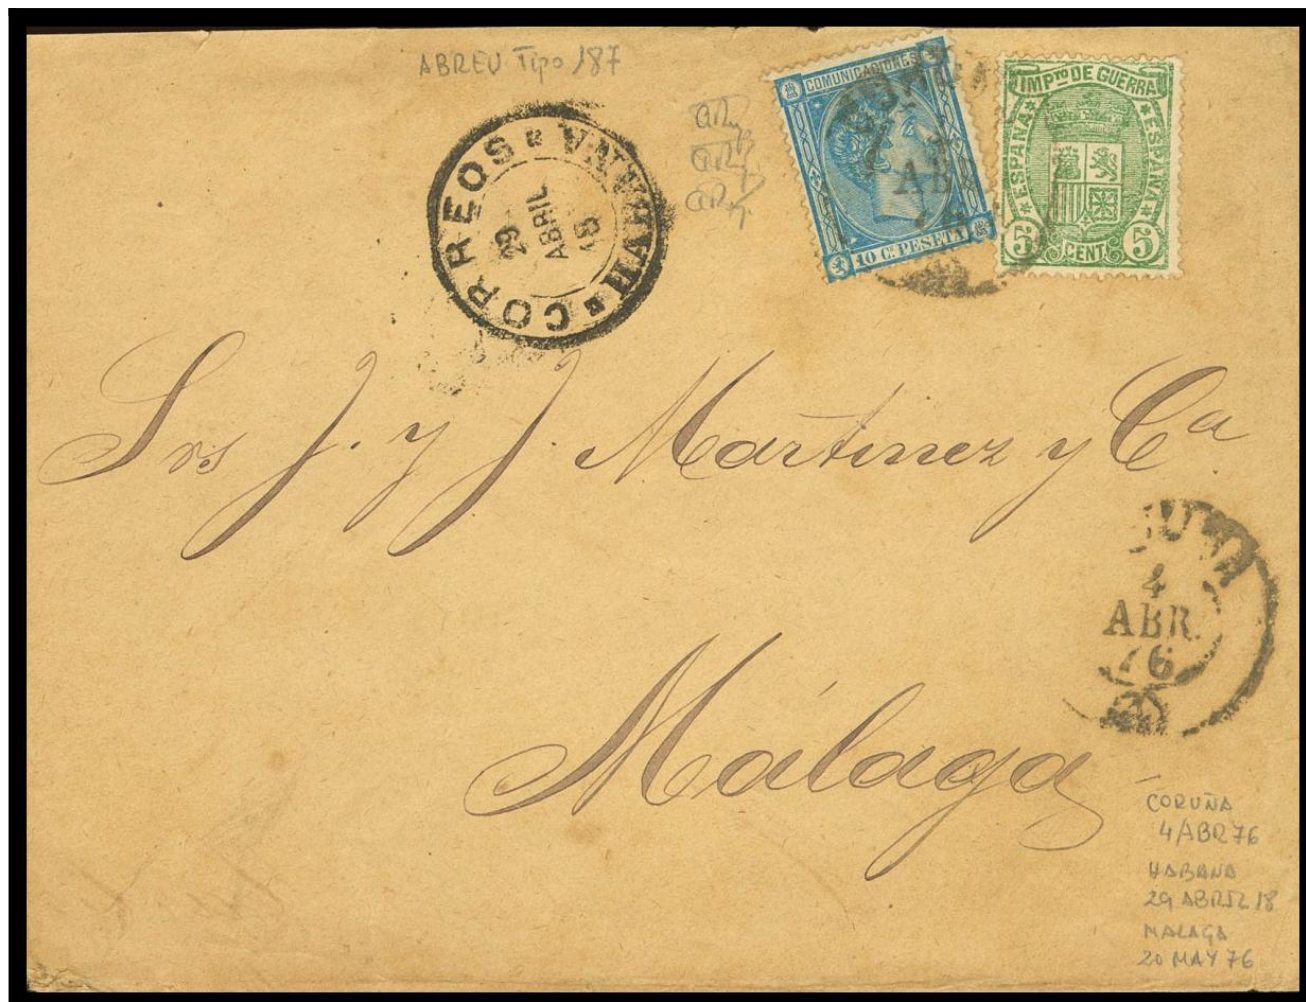 ABREU Tipo 187
CORREOS HABANA
29
ABRIL
18
COMUNICACIONES
10 C. PESETA
ABR
IMPto DE GUERRA
ESPAÑA
ESPAÑA
5 CENT 5
Srs J. y J. Martinez y Ca
4
ABR
76
Málaga
CORUÑA
4/ABR 76
HABANA
29 ABRIL 18
MALAGA
20 MAY 76